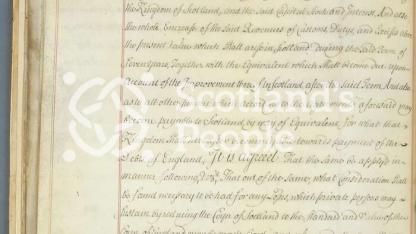 the Kingdom of Scotland, and the said Capital Stock and Interest, And also
the whole Encrease of the said Revenues of Customs, Duties, and Excises above
the present value which shall arise in Scotland during the said Term of
Seven years, Together with the Equivalent which shall become due upon
account of the Improvement thereof in Scotland after the said Term And also
as to all other
become payable to Scotland by way of Equivalent for what that
Kingdom towards payment of the
Debts of England, It is agreed That the same be applyed in
manner following, viz. That out of the same, what consideration shall
be found necessary to be had for any Losses, which private persons may
sustain by reducing the Coyn of Scotland to the Standard and Value of the
Coyn of England
Scotland's
People